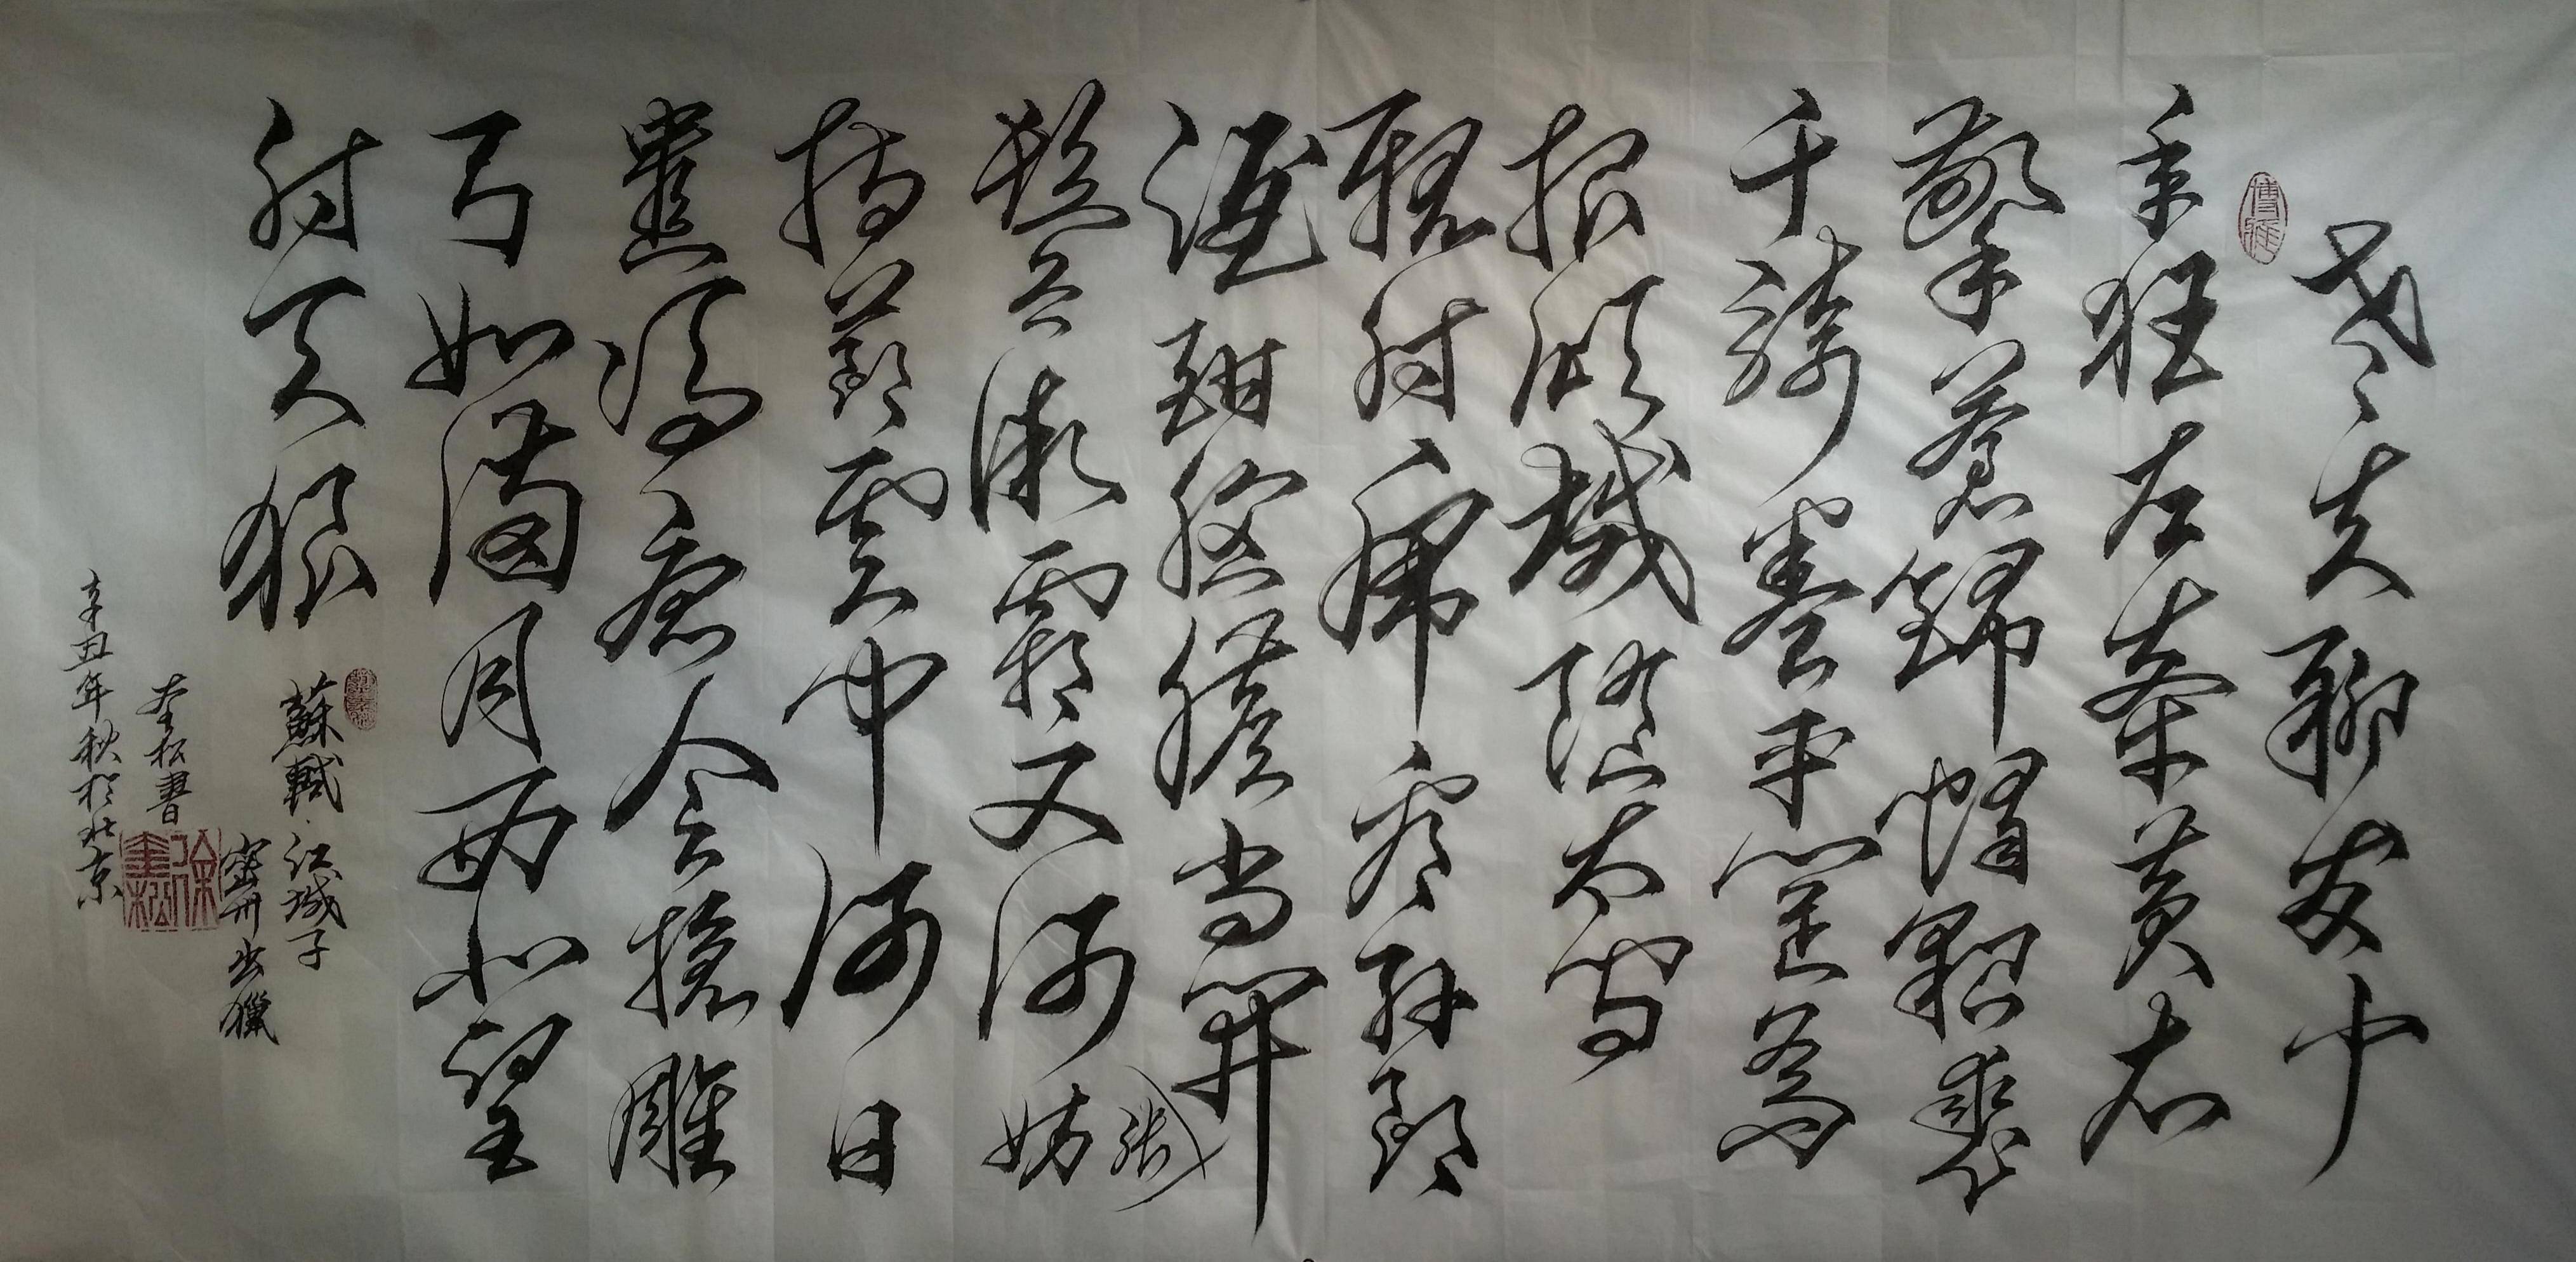 博雅
老夫聊发少
年狂左牽黃右
擎蒼錦帽貂裘
千騎卷平岡為
報傾城隨太守
親射虎看孫郎
酒酣胸膽尚開
張
鬢微霜又何妨
持節雲中何日
遣馮唐會挽雕
弓如滿月西北望
射天狼
蘇軾·江城子
密州出獵
奎松書
辛丑年秋於北京